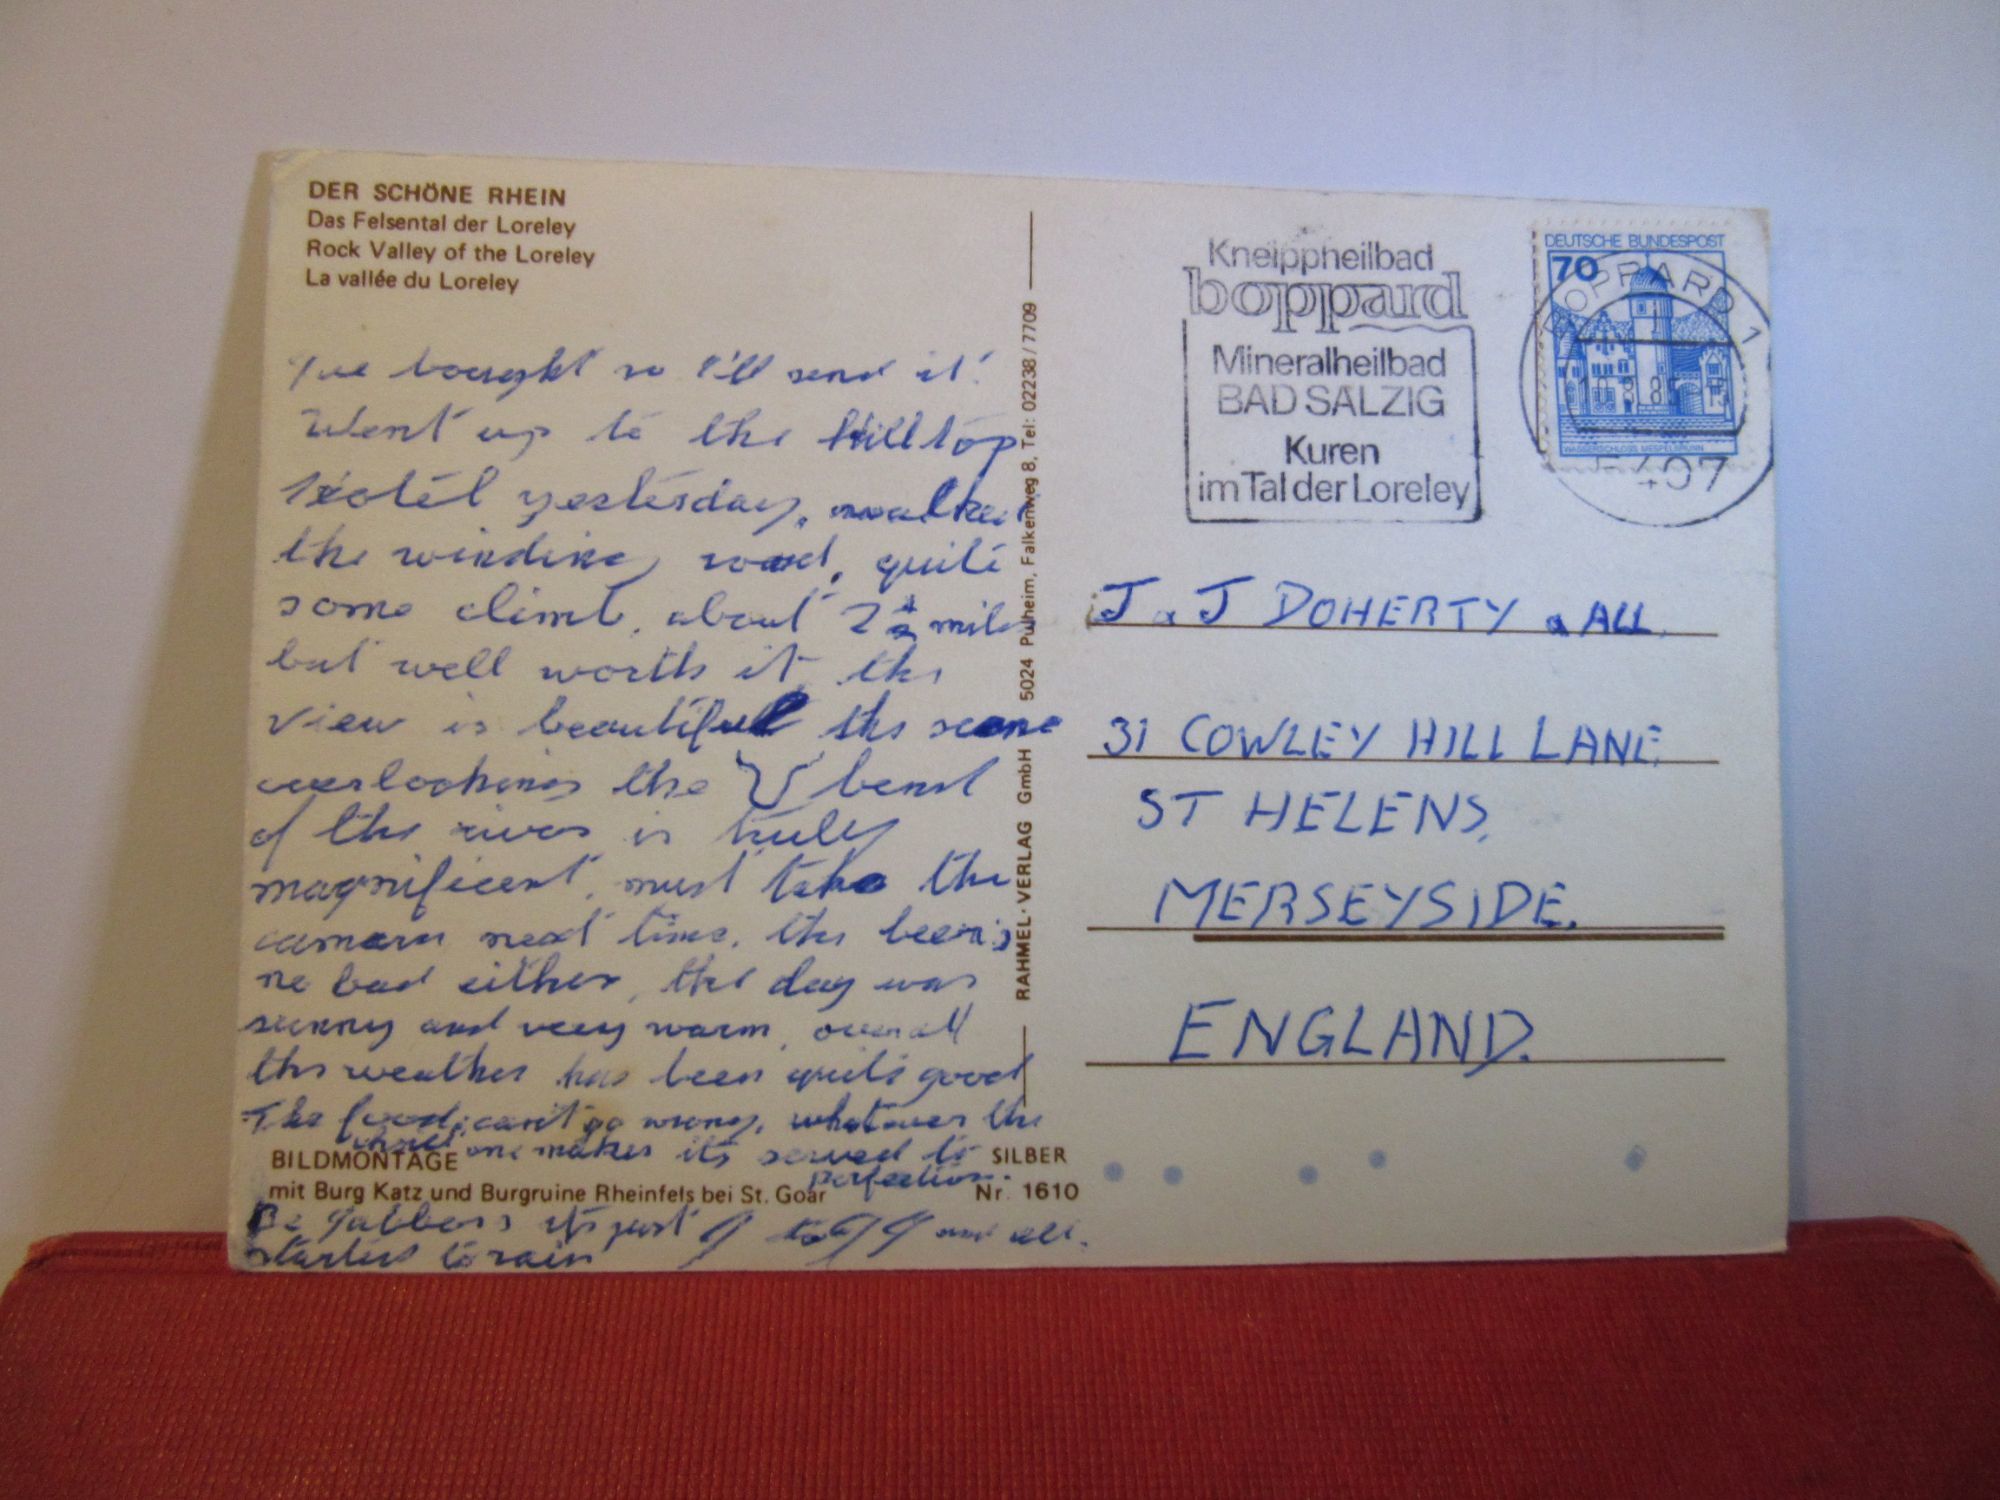 DER SCHÖNE RHEIN
Das Felsental der Loreley
Rock Valley of the Loreley
La vallée du Loreley
I've bought so I'll send it!
Went up to the hilltop
Hotel yesterday, walked
the winding road, quite
some climb, about 2½ miles
but well worth it, the
view is beautiful the scene
overlooking the U bend
of the river is truly
magnificent, must take the
camera next time, the beer's
no bad either, the day was
sunny and very warm, overall
the weather has been quite good
The food: can't go wrong, whatever the
choice one makes its served to
perfection.
BILDMONTAGE
SILBER
mit Burg Katz und Burgruine Rheinfels bei St. Goar
Nr. 1610
its just
and all.
started to rain
RAHMEL-VERLAG GmbH 5024 Pulheim, Falkenweg 8, Tel: 02238/7709
Kneippheilbad
boppard
Mineralheilbad
BAD SALZIG
Kuren
im Tal der Loreley
DEUTSCHE BUNDESPOST
70
WASSERSCHLOSS MESPELBRUNN
BOPPARD 1
5407
J & J DOHERTY & ALL.
31 COWLEY HILL LANE,
ST HELENS,
MERSEYSIDE.
ENGLAND.